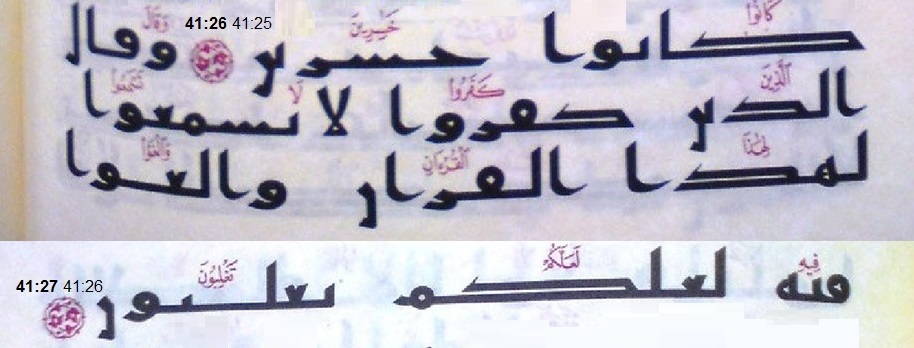 كانوا خسرين 41:26 41:25 وقال
الذين كفروا لا تسمعوا
لهذا القران والغوا
فيه لعلكم تغلبون 41:27 41:26